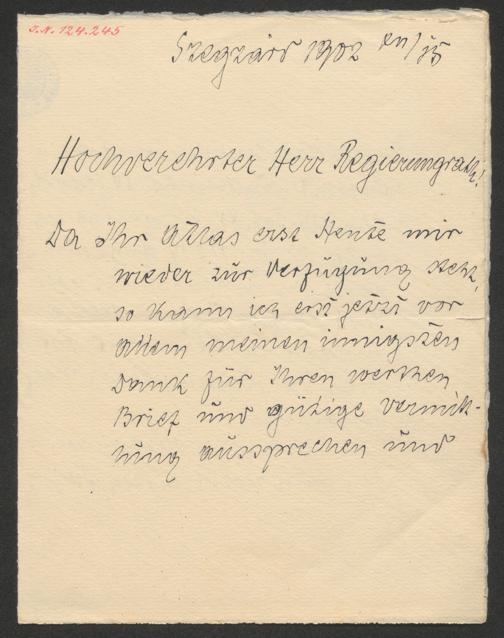 J.N. 124.245
Szegzárd 1902 XII/15
Hochverehrter Herr Regierungrath!
Da Ihr Atlas erst Heute mir
wieder zur Verfügung steht,
so kann ich erst jetzt vor
Allem meinen innigsten
Dank für Ihren werthen
Brief und gütige Vermitt-
lung aussprechen und